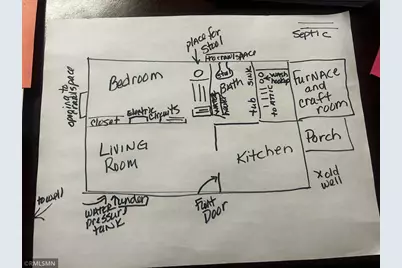 Septic
place for
Stool
to crawlspace
Bedroom
Stool
Bath
Sink
tub
water
heater
wash
hookup
to Attic
Furnace
and
craft
room
opening to
crawlspace
closet
Electric
Circuits
Living
Room
Kitchen
Porch
x old
well
to well
water
pressure
tank
under
Front
Door
©RMLSMN